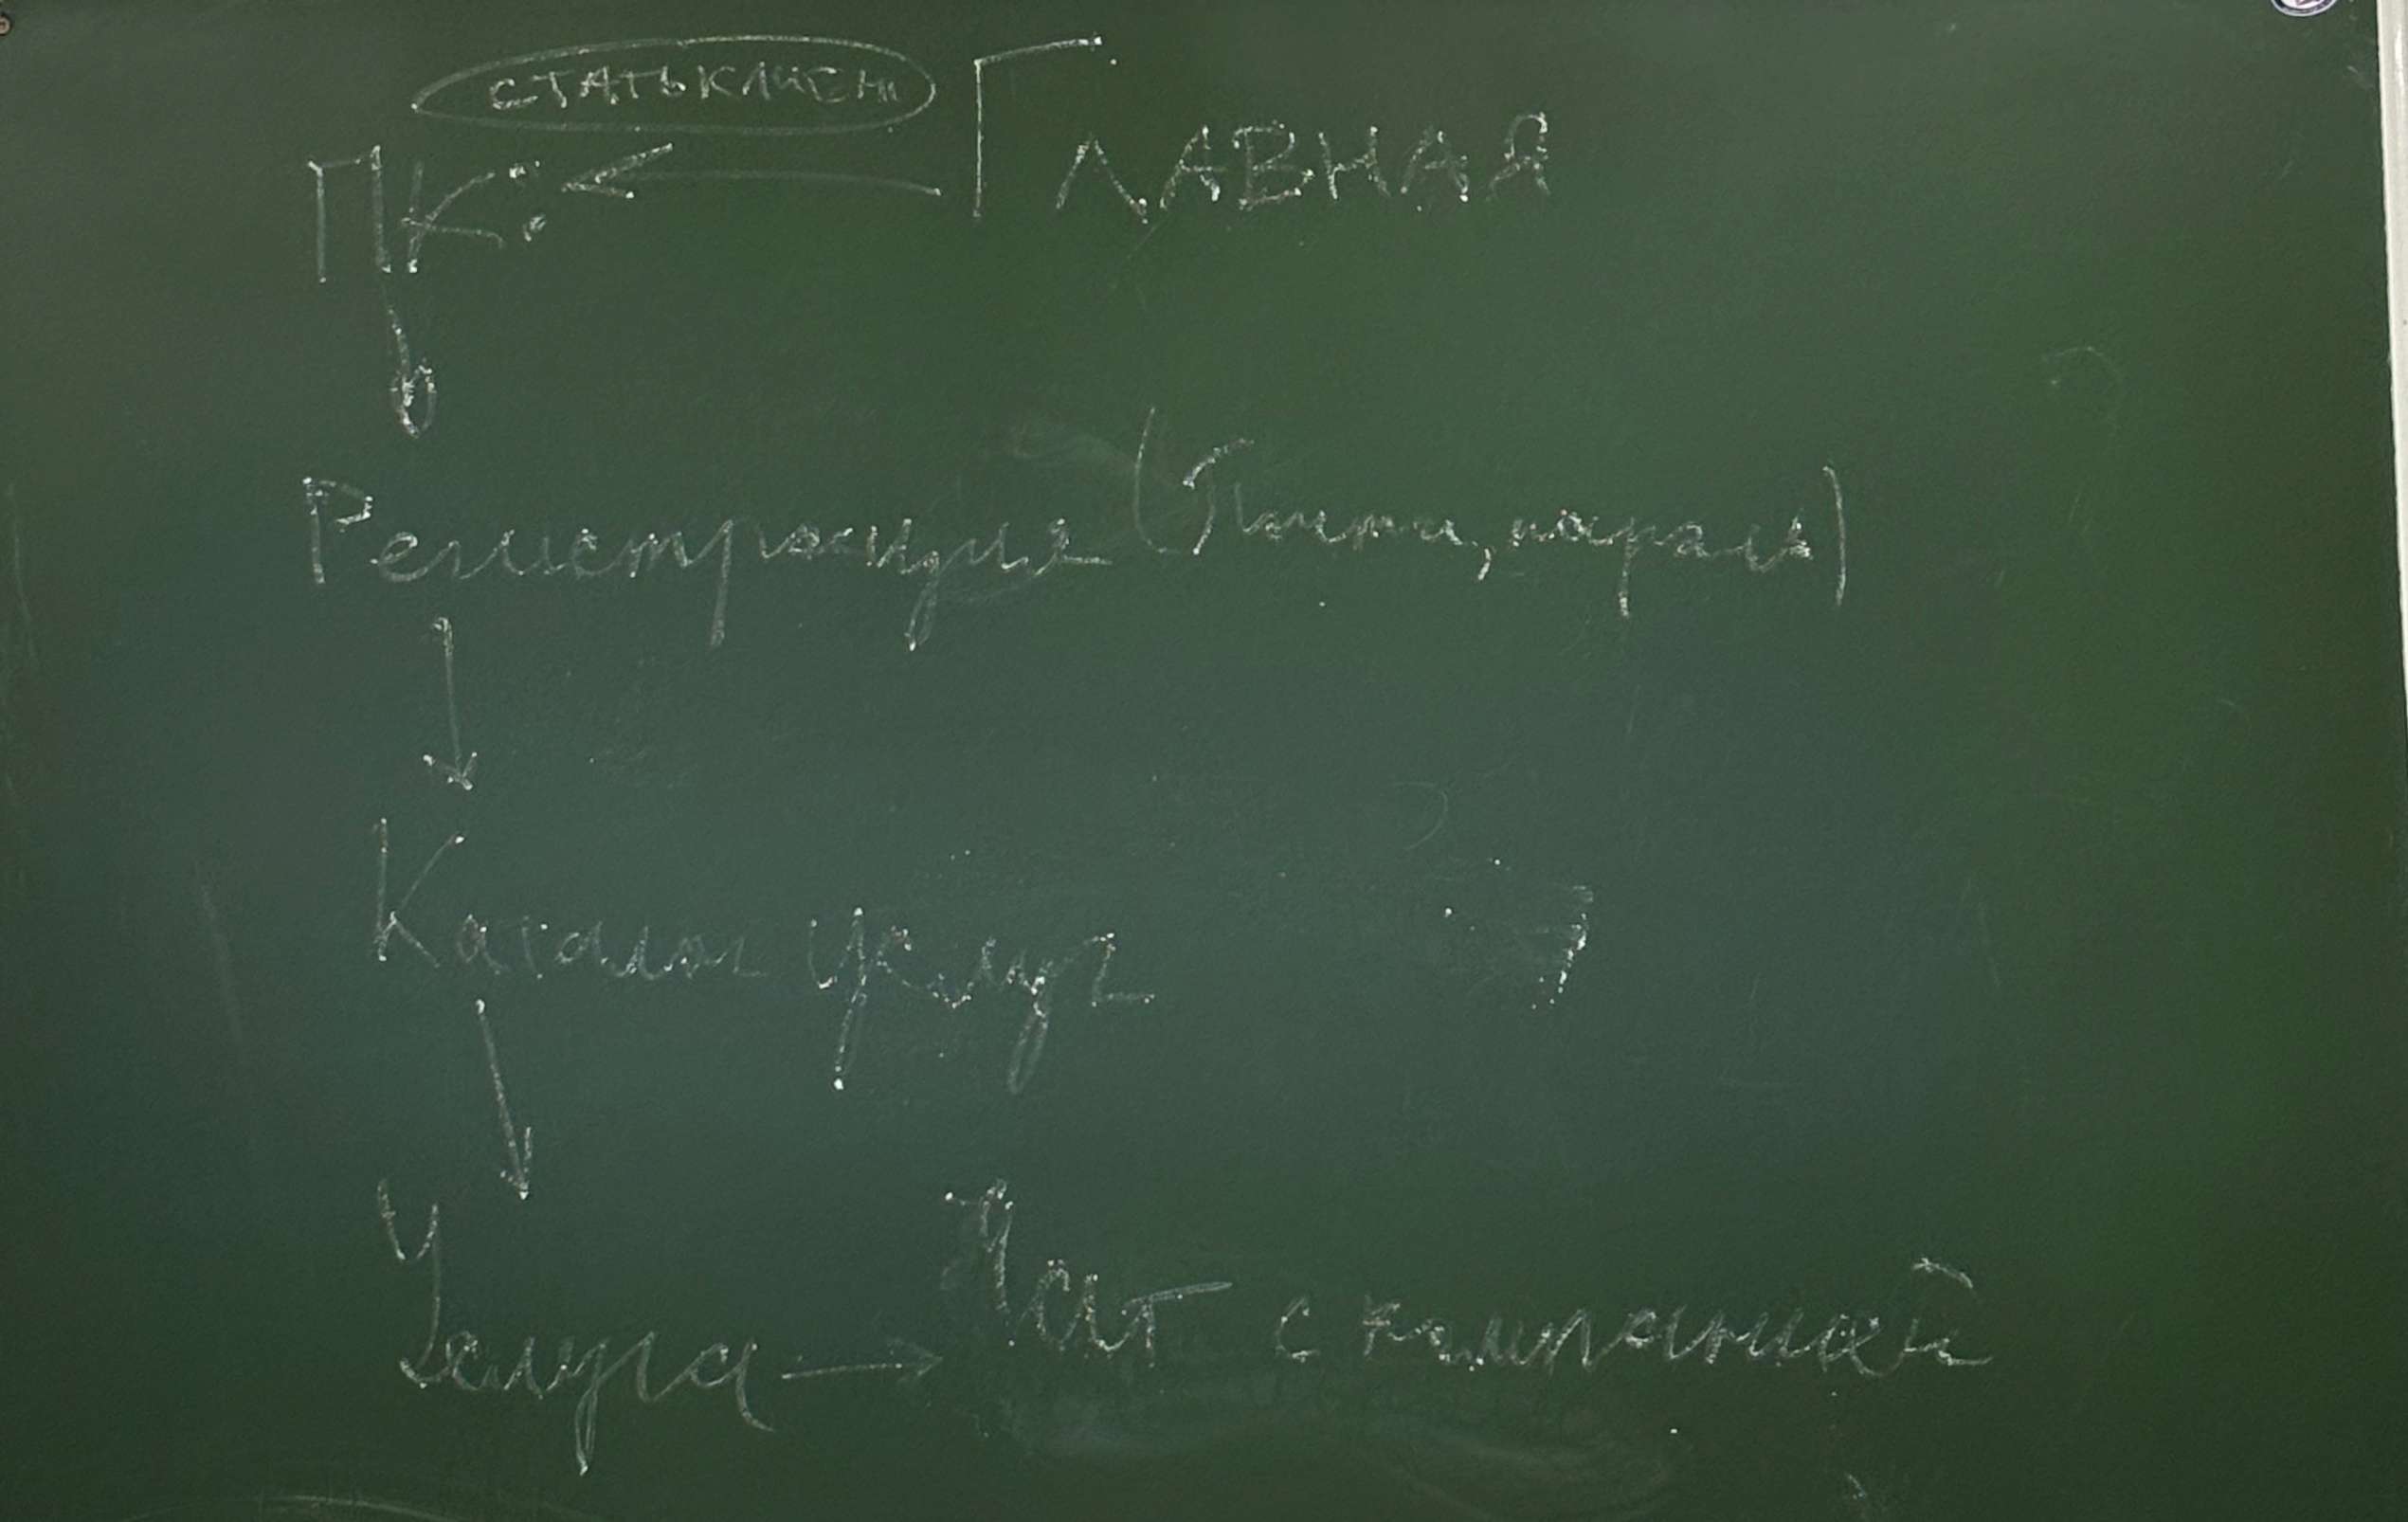 СТАТЬ КЛИЕН
ГЛАВНАЯ
ПК:
Регистрация (почта, пароль)
Каталог услуг
Услуга → Чат с компанией